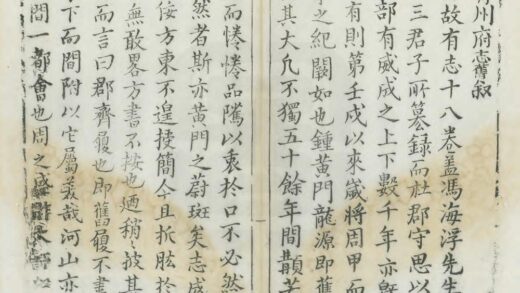 州府志舊叙
故有志十八卷盖馮海浮先生
三君子所纂録而杜郡守思以
部有威成之上下數千年亦
有則第壬戌以来嵗將周甲而
之紀闕如也鍾黄門龍源即舊
其大凡不獨五十餘年間顯若
而惓惓品隲以衷扵口不必然
然者斯亦黄門之蔚斑矣志成
侫方東不遑捷簡今且折肱扵
無敢畧方書不捷也廼稍披其
而言曰郡齊履也即舊履不
下而間附以它屬羙哉河山亦
間一都會也周之